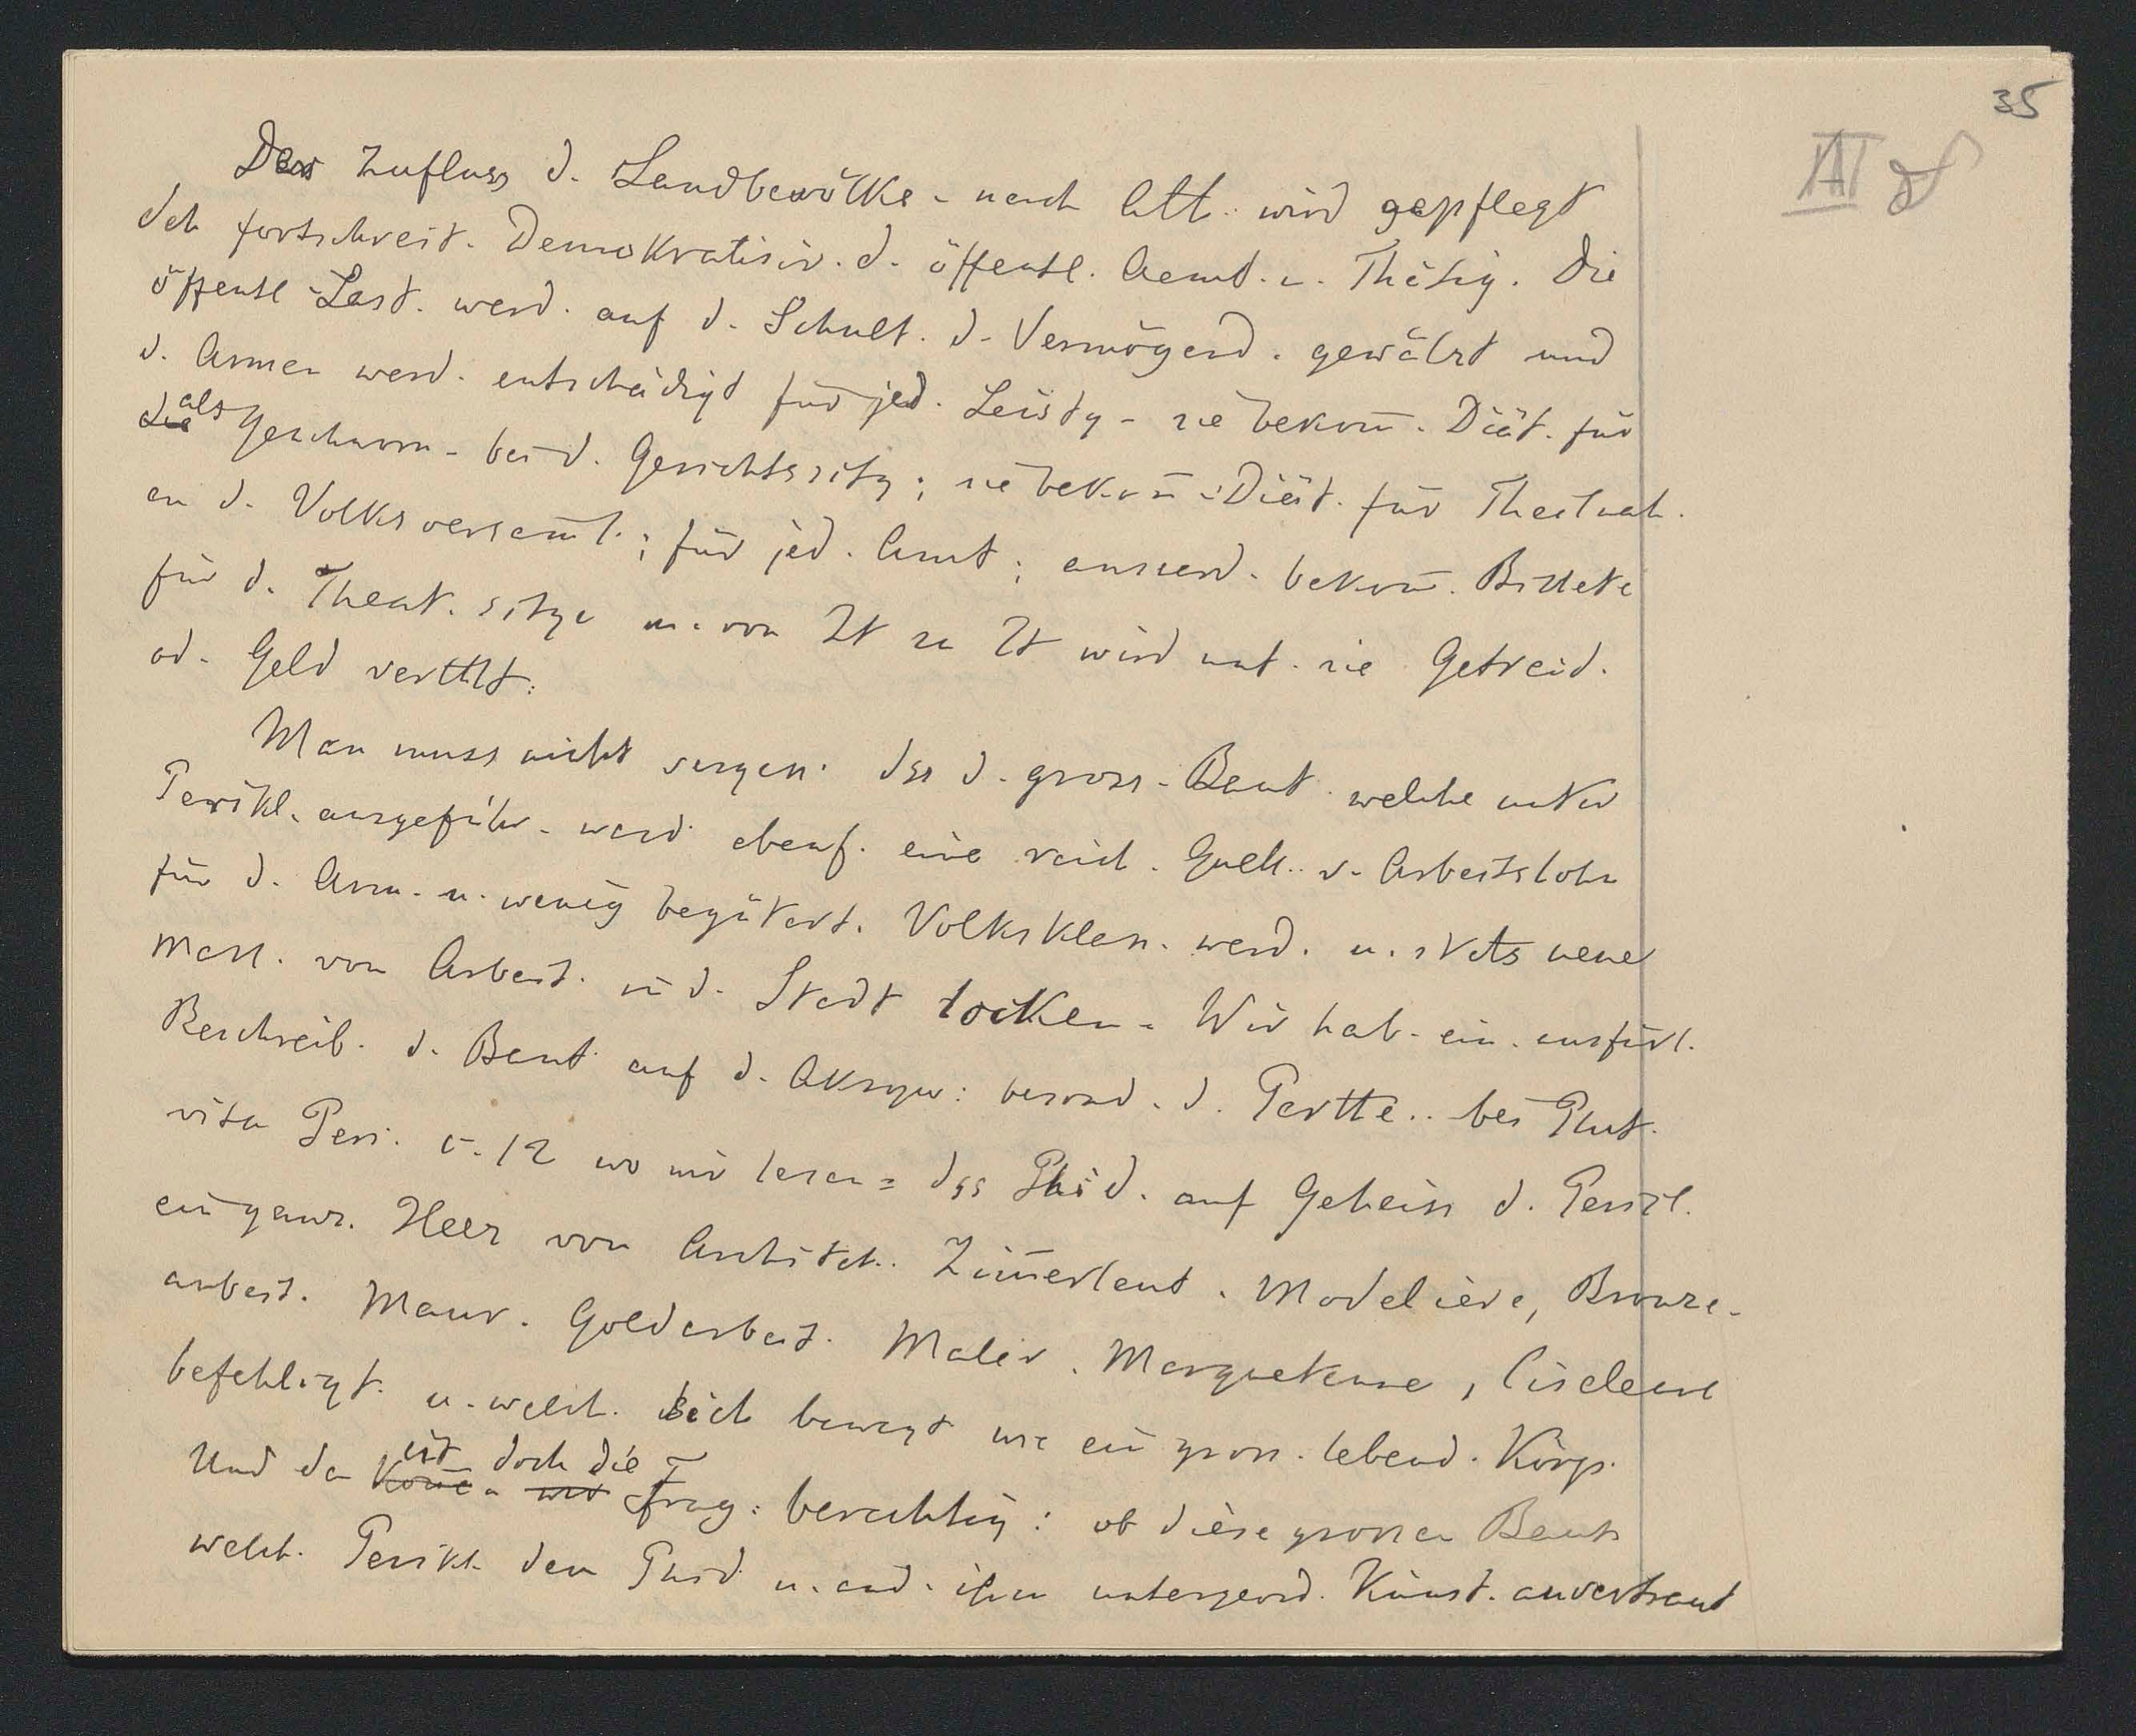 35
III
Der Zufluss d. Landbevölke. nach Ath. wird gepflegt
dch fortschreit. Demokratisir. d. öffentl. Aemt. u. Thätig. Die
öffentl. Last. werd. auf d. Schult. d. Vermögend. gewälzt und
d. Armen werd. entschädigt für jed. Leistg - sie bekom̄. Diät. für
als Geschworn. bei d. Gerichtssitzg; sie bekom̄. Diät. für Theilnah.
an d. Volksversam̄l.; für jed. Amt; ausserd. bekom̄. Billete
für d. Theat. sitze u. von Zt zu Zt wird unt. sie Getreid.
od. Geld verthlt.
Man muss nicht sagen dss d. gross. Baut. welche unter
Perikl. ausgeführ. werd. ebenf. eine reich. Quell. v. Arbeitslohn
für d. Arm. u. wenig begütert. Volksklass. werd. u. stets neue
Mass. von Arbeit. in d. Stadt locken. Wir hab. ein. ausfürl.
Beschreib. d. Baut. auf d. Akrop. besond. d. Parthe.. bei Plut.
vita Peri. c. 12 wo wir lesen dss Phid. auf Geheiss d. Perikl.
ein ganz. Heer von Architek. Zim̄erleut. Modelière, Bronze-
arbeit. Maur. Goldarbeit. Maler. Marqueteure, Ciseleure
befehligt. u. welch. sich bewegt wie ein gross. lebend. Körp.
ist doch die
Und da Kön̄e. wir Frag. berechtig: ob diese grossen Baut.
welch. Perikl. dem Phid. u. and. ihm untergeord. Künst. anvertraut